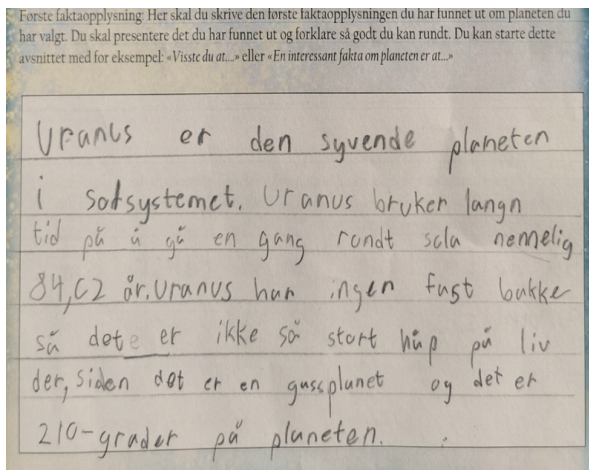 Første faktaopplysning: Her skal du skrive den første faktaopplysningen du har funnet ut om planeten du
har valgt. Du skal presentere det du har funnet ut og forklare så godt du kan rundt. Du kan starte dette
avsnittet med for eksempel: «Visste du at...» eller «En interessant fakta om planeten er at...»
Uranus er den syvende planeten
i solsystemet. Uranus bruker langn
tid på å gå en gang rundt sola nemelig
84,02 år. Uranus har ingen fast bakke
så dete er ikke så stort håp på liv
der, siden det er en gassplanet og det er
210-grader på planeten.